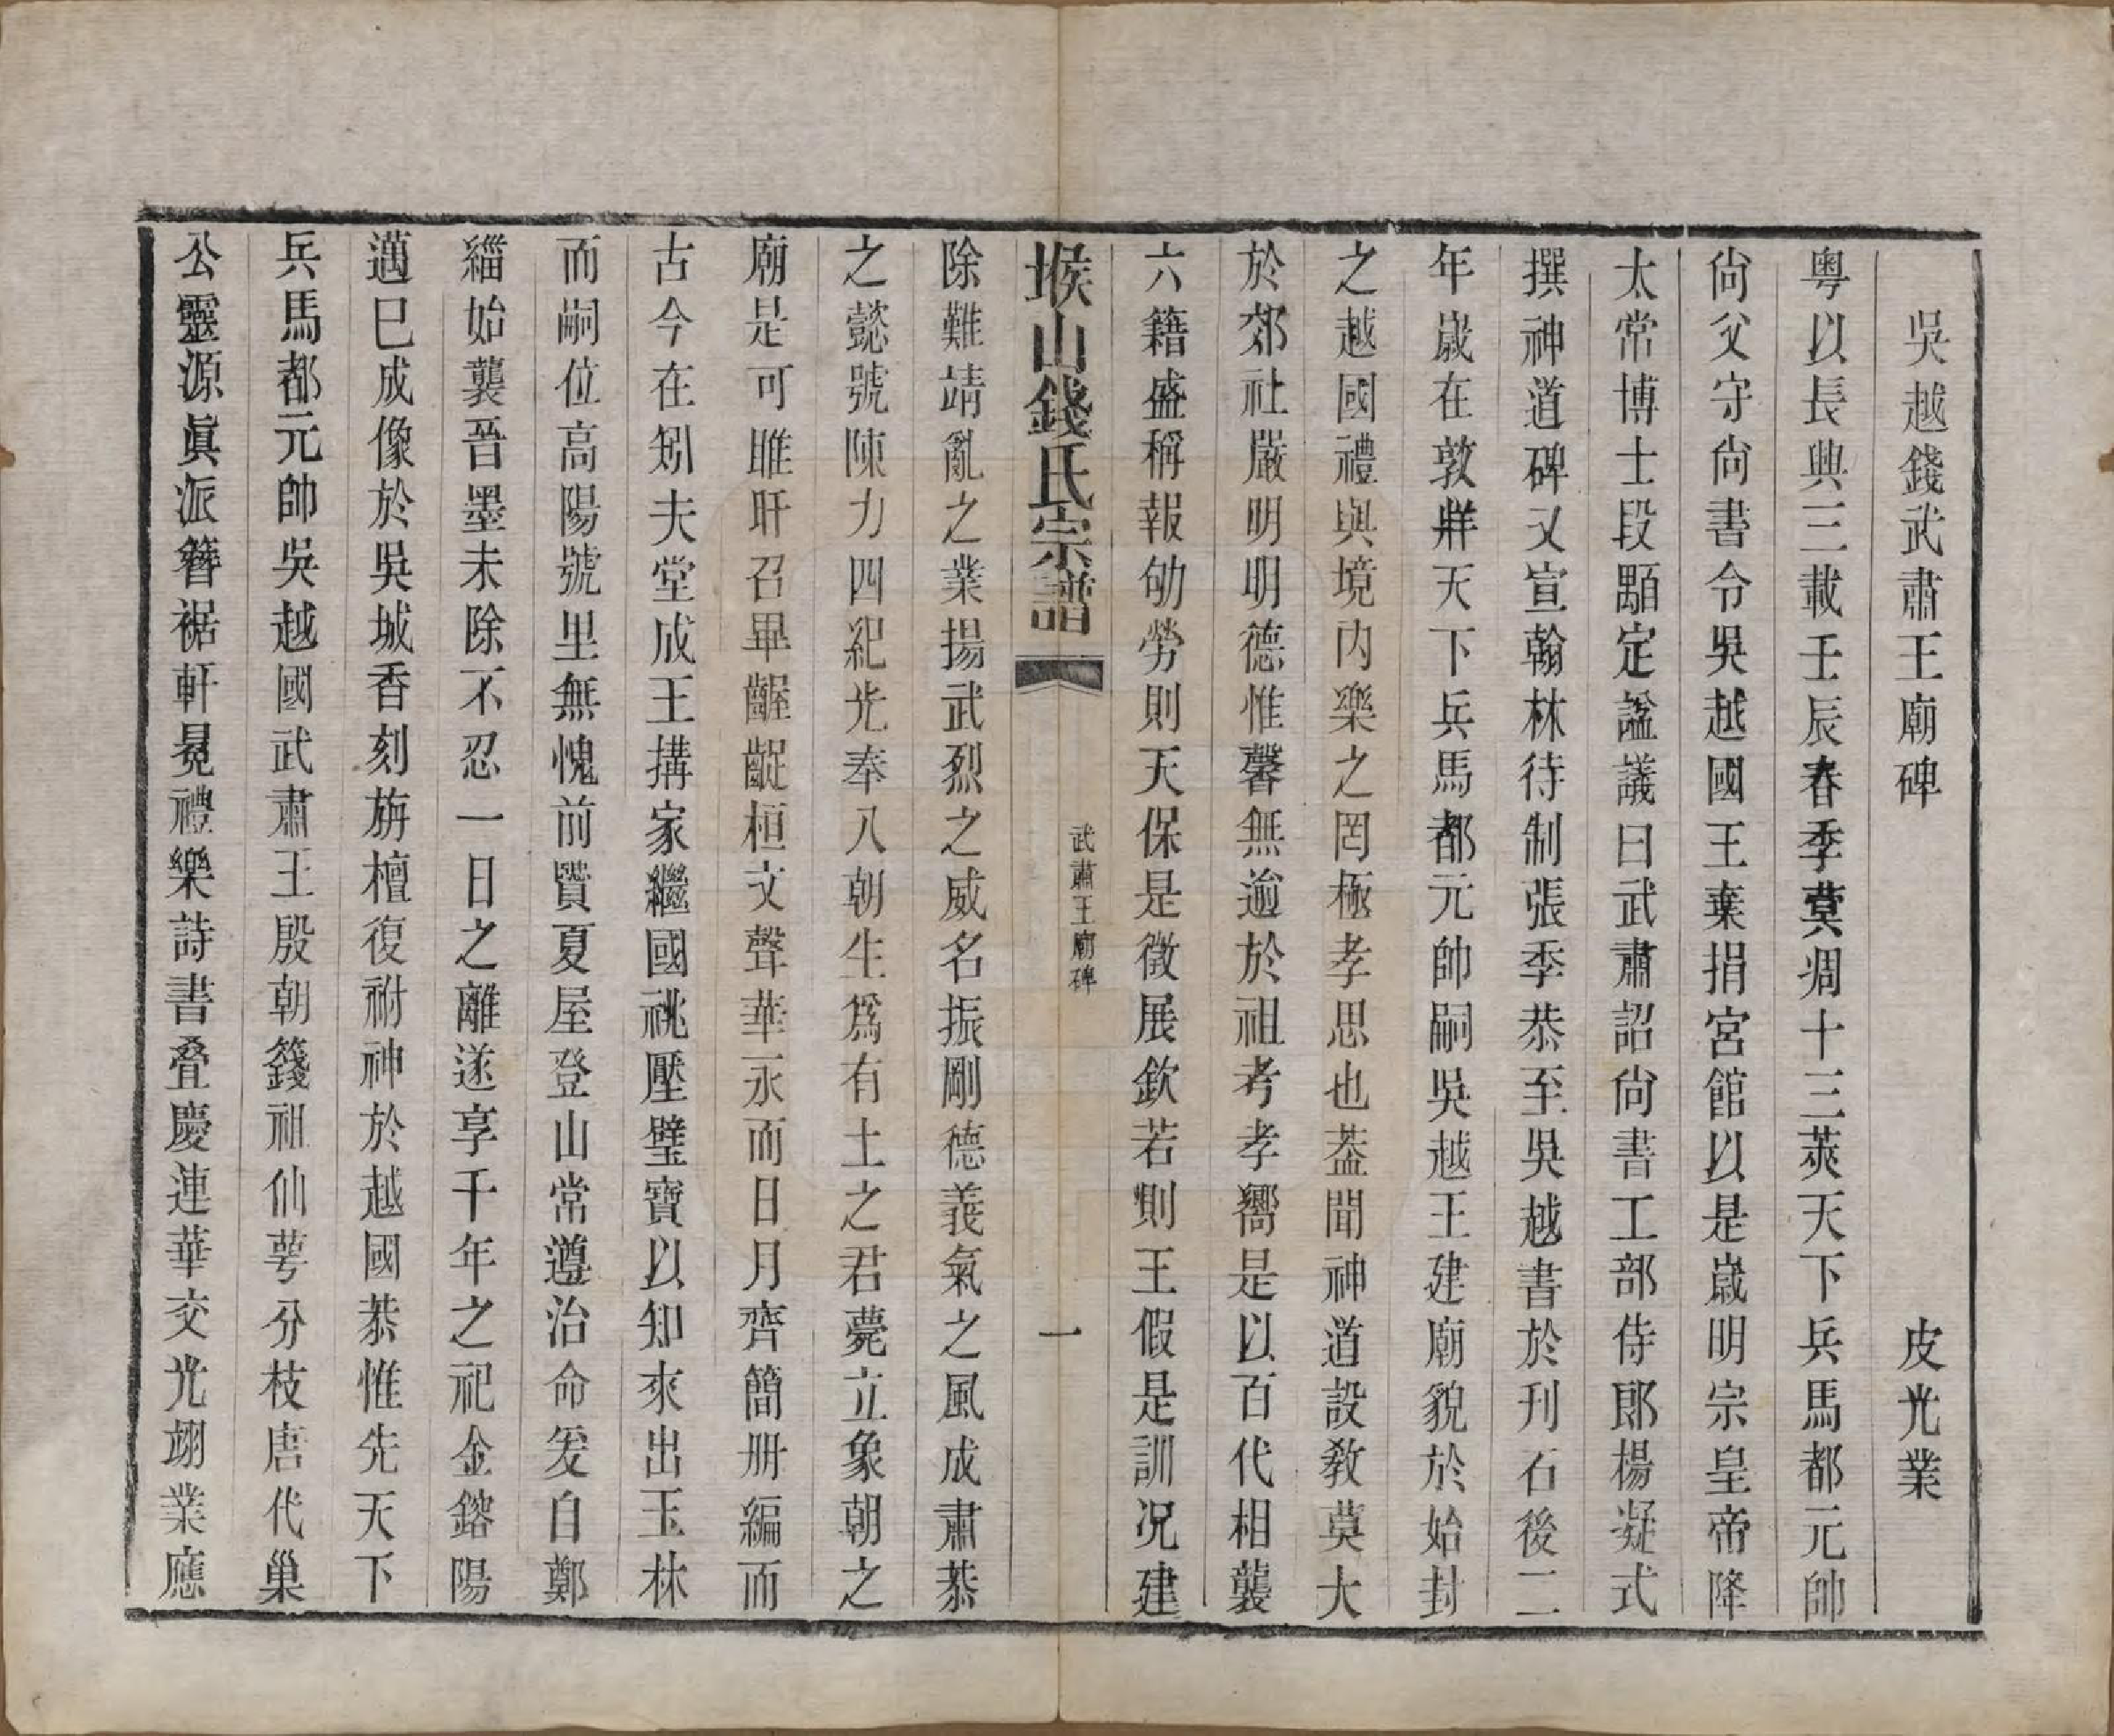 吳越錢武肅王廟碑　皮光業
粵以長興三載壬辰春季蓂凋十三莢天下兵馬都元帥
尙父守尙書令吳越國王棄捐宮館以是歲明宗皇帝降
太常博士段顒定諡議曰武肅詔尙書工部侍郞楊凝式
撰神道碑又宣翰林待制張季恭至吳越書於刋石後二
年歲在敦牂天下兵馬都元帥嗣吳越王建廟貌於始封
之越國禮與境內樂之罔極孝思也葢聞神道設敎莫大
於郊社嚴明明德惟馨無逾於祖考孝嚮是以百代相襲
六籍盛稱報劬勞則天保是徵展欽若則王假是訓况建
堠山錢氏宗譜　武肅王廟碑　一
除難靖亂之業揚武烈之威名振剛德義氣之風成肅恭
之懿號陳力四紀光奉八朝生爲有土之君薨立象朝之
廟是可睢盱召畢齷齪桓文聲華永而日月齊簡册編而
古今在矧夫堂成王搆家繼國祧壓璧寶以知來出玉林
而嗣位高陽號里無愧前賢夏屋登山常遵治命爰自鄭
緇始襲晉墨未除不忍一日之離遂享千年之祀金鎔陽
邁巳成像於吳城香刻旃檀復祔神於越國恭惟先天下
兵馬都元帥吳越國武肅王殷朝籛祖仙萼分枝唐代巢
公靈源眞派簪裾軒冕禮樂詩書叠慶連華交光翊業應